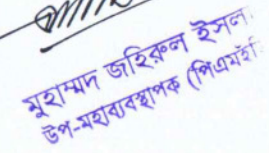 মুহাম্মদ জহিরুল ইসলা
উপ-মহাব্যবস্থাপক (পিএমই